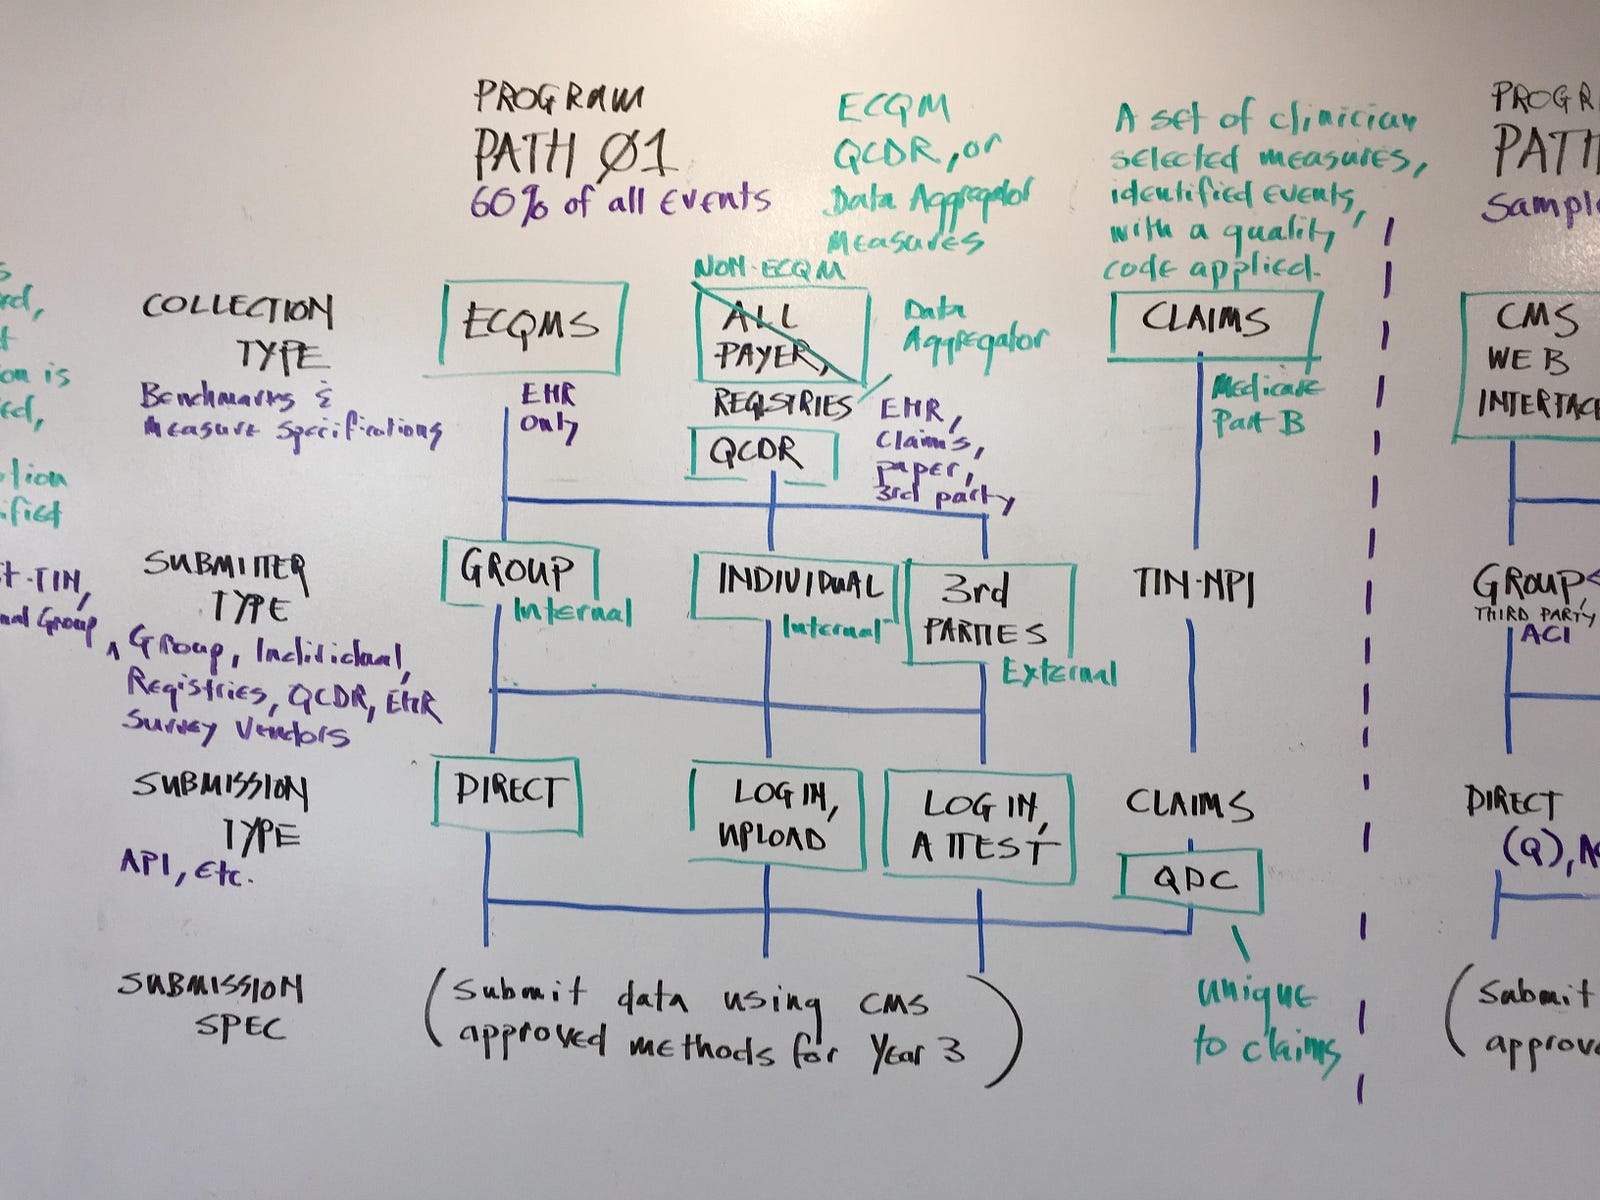 PROGRAM
PATH Ø1
60% of all Events
ECQM
QCDR, or
Data Aggregator
Measures
A set of clinician
selected measures,
identified events,
with a quality
code applied.
PROGR
PATH
Sampl
COLLECTION
TYPE
Benchmarks &
Measure Specifications
ECQMS
EHR
only
NON-ECQM
ALL
PAYER,
REGISTRIES
QCDR
Data
Aggregator
EHR,
Claims,
paper,
3rd party
CLAIMS
Medicare
Part B
CMS
WEB
INTERFACE
on is
tion
ified
t-TIN,
nal Group
SUBMITTER
TYPE
^ Group, Individual,
Registries, QCDR, EHR
Survey Vendors
GROUP
Internal
INDIVIDUAL
Internal
3rd
PARTIES
External
TIN-NPI
GROUP,
THIRD PARTY
ACI
SUBMISSION
TYPE
API, Etc.
DIRECT
LOG IN,
UPLOAD
LOG IN,
ATTEST
CLAIMS
QDC
unique
to claims
DIRECT
(Q), A
SUBMISSION
SPEC
(Submit data using CMS
approved methods for Year 3)
(Submit
approv